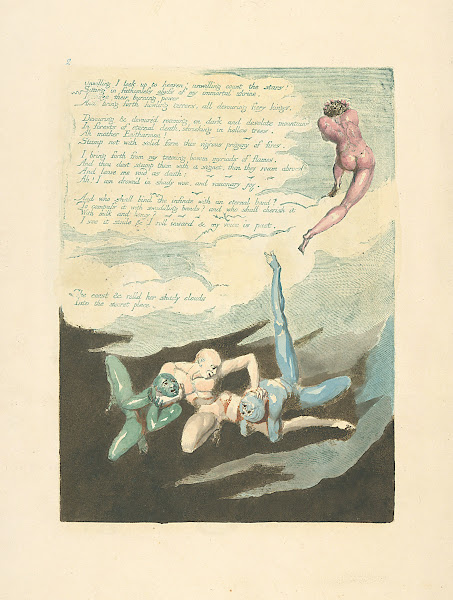 2
Unwilling I look up to heaven! unwilling count the stars!
Sitting in fathomless abyss of my immortal shrine.
I sieze their burning power
And bring forth howling terrors, all devouring fiery kings.
Devouring & devoured roaming on dark and desolate mountains
In forests of eternal death, shrieking in hollow trees.
Ah mother Enitharmon!
Stamp not with solid form this vig'rous progeny of fires.
I bring forth from my teeming bosom myriads of flames.
And thou dost stamp them with a signet, then they roam abroad
And leave me void as death:
Ah! I am drown'd in shady woe, and visionary joy.
And who shall bind the infinite with an eternal band?
To compass it with swaddling bands? and who shall cherish it
With milk and honey?
I see it smile & I roll inward & my voice is past.
She ceast & rolld her shady clouds
Into the secret place.